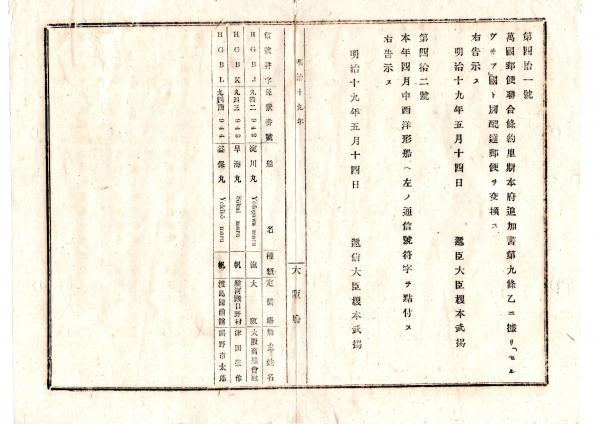 第四拾一號
萬國郵便聯合條約里斯本府追加書第九條乙ニ據リ「セルヴヰア」國ト別配達郵便ヲ交換ス
右告示ス
明治十九年五月十四日
遞信大臣榎本武揚
第四拾二號
本年四月中西洋形船ヘ左ノ通信號符字ヲ點付ス
右告示ス
明治十九年五月十四日
遞信大臣榎本武揚
明治十九年
大阪
信號符字 免狀番號 船名 種類 定繫場 船主姓名
HGBJ 九四二 942 淀川丸 Yodogawa maru 滊 大阪 大阪商船會社
HGBK 九四三 943 maru 帆 駿河國 村 津田
HGBL 九四四 944 丸 maru 帆 渡島國函館 野市太郎